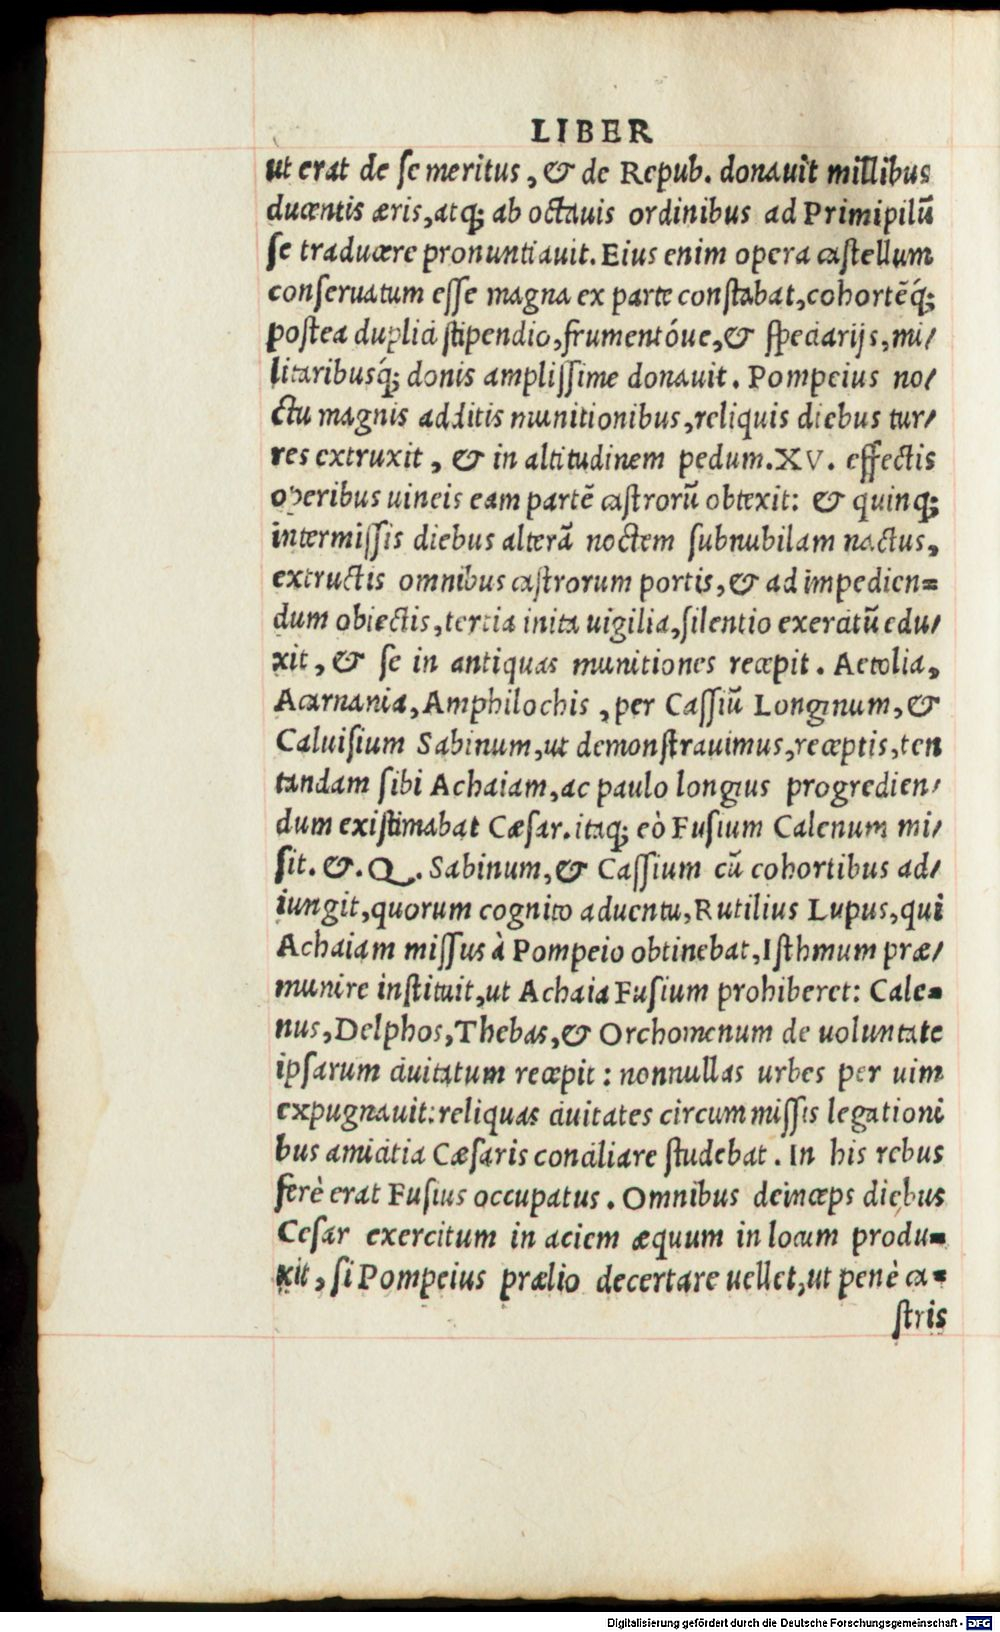 LIBER
ut erat de ſe meritus, & de Repub. donauit millibus
ducentis æris, atq; ab octauis ordinibus ad Primipilū
ſe traducere pronuntiauit. Eius enim opera caſtellum
conſeruatum eſſe magna ex parte conſtabat, cohortēq́;
poſtea duplici ſtipendio, frumentóue, & ſpeciarijs, mi/
litaribusq́; donis ampliſſime donauit. Pompeius no/
ctu magnis additis munitionibus, reliquis diebus tur/
res extruxit, & in altitudinem pedum. XV. effectis
operibus uineis eam partē caſtrorū obtexit: & quinq;
intermiſſis diebus alterā noctem ſubnubilam nactus,
extructis omnibus caſtrorum portis, & ad impedien=
dum obiectis, tertia inita uigilia, ſilentio exercitū edu/
xit, & ſe in antiquas munitiones recepit. Aetolia,
Acarnania, Amphilochis, per Caſſiū Longinum, &
Caluiſium Sabinum, ut demonſtrauimus, receptis, ten
tandam ſibi Achaiam, ac paulo longius progredien/
dum exiſtimabat Cæſar. itaq; eò Fuſium Calenum mi/
ſit. &. Q. Sabinum, & Caſſium cū cohortibus ad/
iungit, quorum cognito aduentu, Rutilius Lupus, qui
Achaiam miſſus à Pompeio obtinebat, Iſthmum præ/
munire inſtituit, ut Achaia Fuſium prohiberet: Cale=
nus, Delphos, Thebas, & Orchomenum de uoluntate
ipſarum ciuitatum recepit: nonnullas urbes per uim
expugnauit: reliquas ciuitates circummiſſis legationi
bus amicitia Cæſaris conciliare ſtudebat. In his rebus
ferè erat Fuſius occupatus. Omnibus deinceps diebus
Ceſar exercitum in aciem æquum in locum produ=
xit, ſi Pompeius prælio decertare uellet, ut penè ca=
ſtris
Digitalisierung gefördert durch die Deutsche Forschungsgemeinschaft - DFG